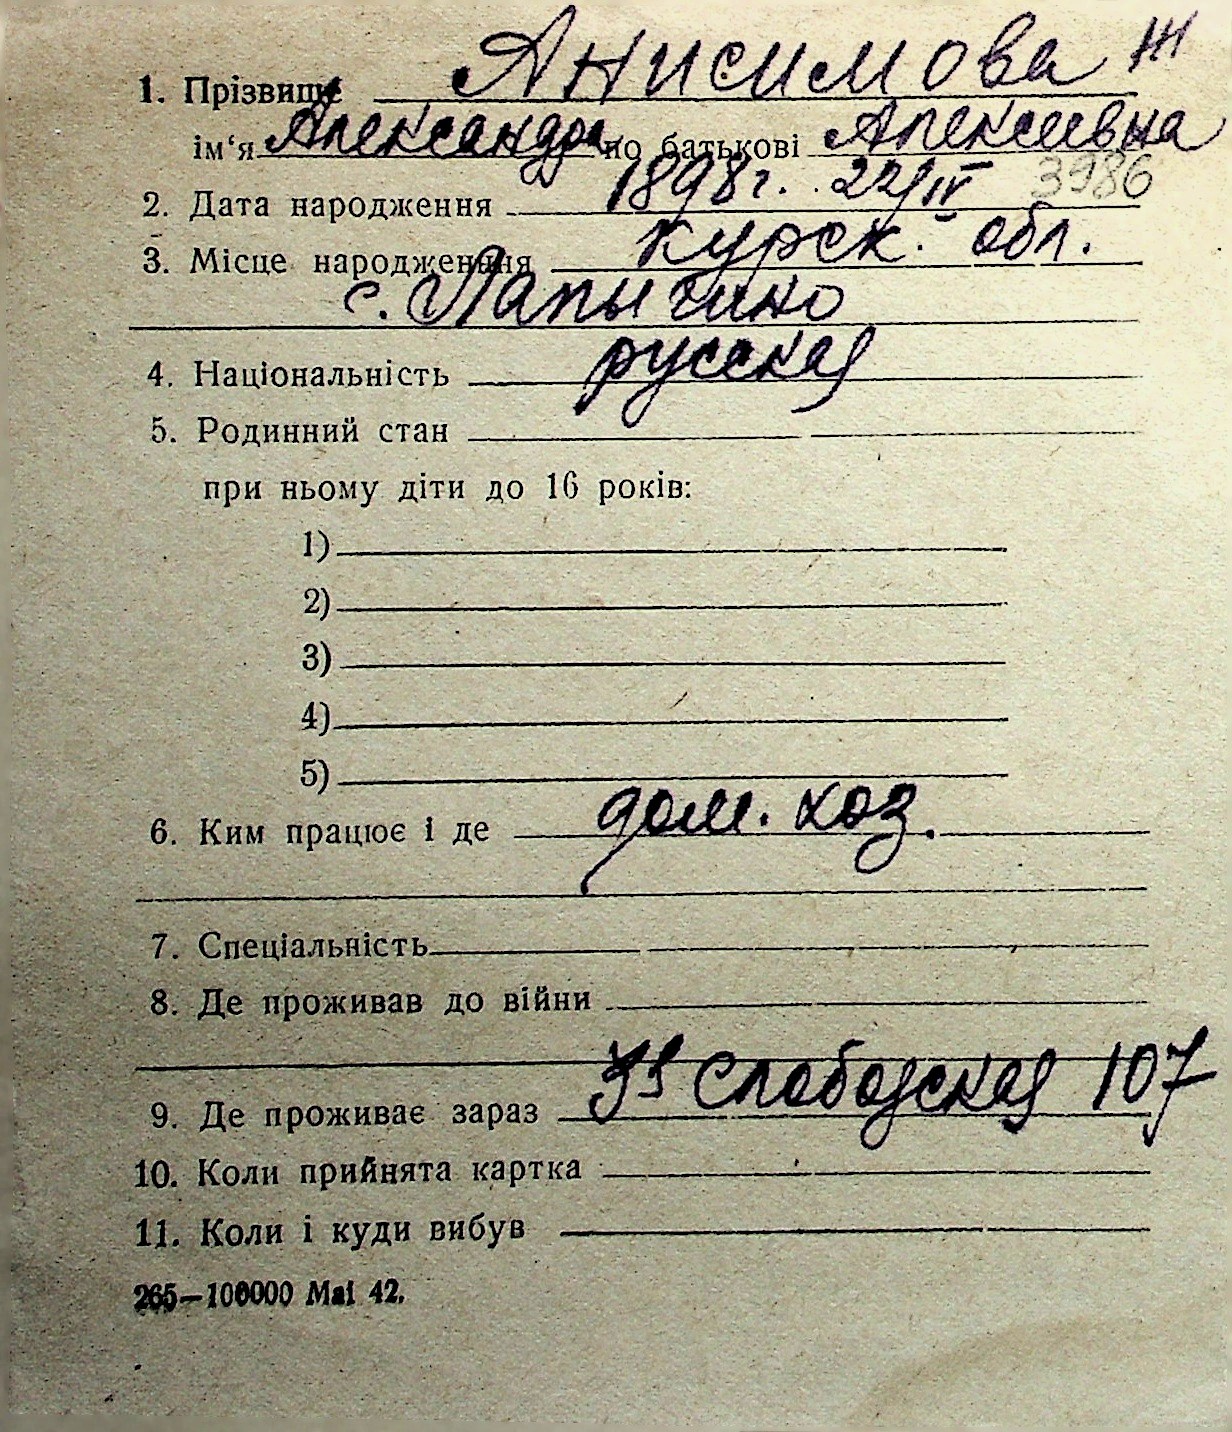 Анисимова Ж
1. Прізвище
ім‘я Александра по батькові Алексеевна
2. Дата народження 1898г. 22/IV 3986
3. Місце народження Курск. обл.
с. Лапыгино
4. Національність русская
5. Родинний стан
при ньому діти до 16 років:
1)
2)
3)
4)
5)
6. Ким працює і де дом. хоз.
7. Спеціальність
8. Де проживав до війни
9. Де проживає зараз Слободская 107
10. Коли прийнята картка
11. Коли і куди вибув
265—100000 Mai 42.